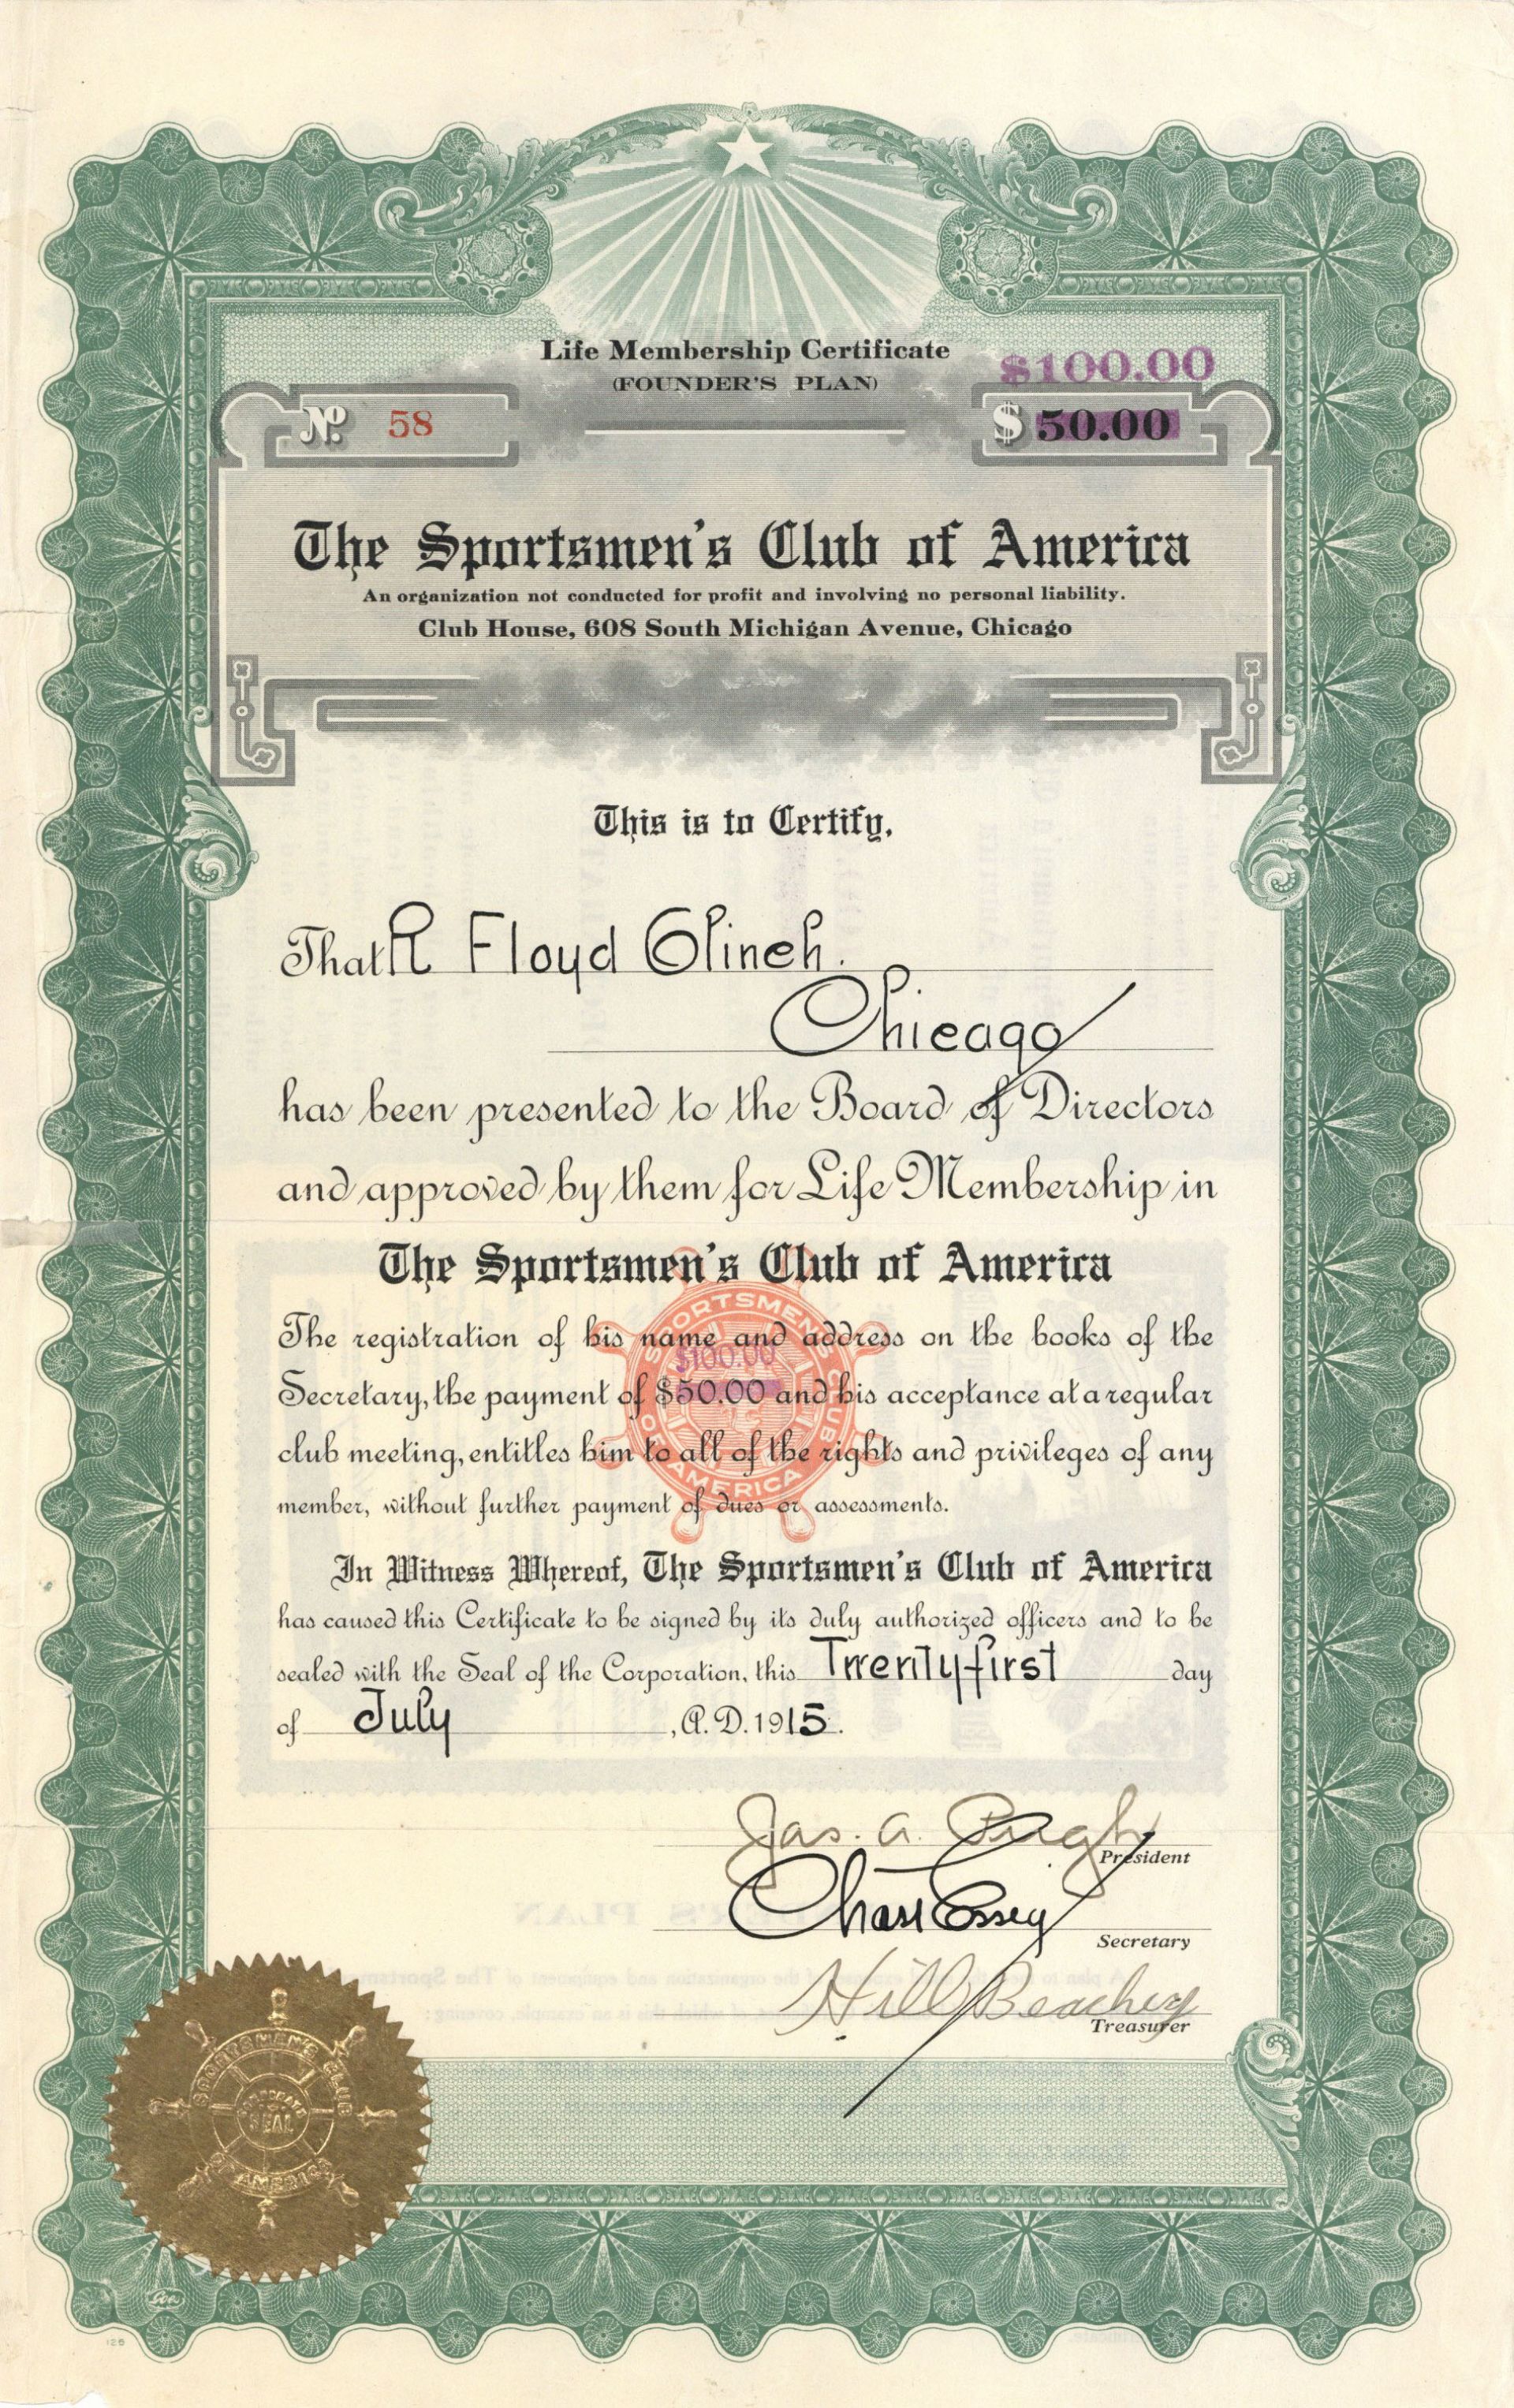 Life Membership Certificate
(FOUNDER'S PLAN)
$100.00
No. 58
$ 50.00
The Sportsmen's Club of America
An organization not conducted for profit and involving no personal liability.
Club House, 608 South Michigan Avenue, Chicago
This is to Certify,
That R Floyd Clinch.
Chicago
has been presented to the Board of Directors
and approved by them for Life Membership in
The Sportsmen's Club of America
The registration of his name and address on the books of the
$100.00
Secretary, the payment of $50.00 and his acceptance at a regular
club meeting, entitles him to all of the rights and privileges of any
member, without further payment of dues or assessments.
SPORTSMEN'S CLUB OF AMERICA
In Witness Whereof, The Sportsmen's Club of America
has caused this Certificate to be signed by its duly authorized officers and to be
sealed with the Seal of the Corporation, this Twenty first day
of July, A.D. 1915.
Jas. A. Pugh
President
Secretary
Hill Beachey
Treasurer
SPORTSMEN'S CLUB
OF AMERICA
CORPORATE
SEAL
Goes
126